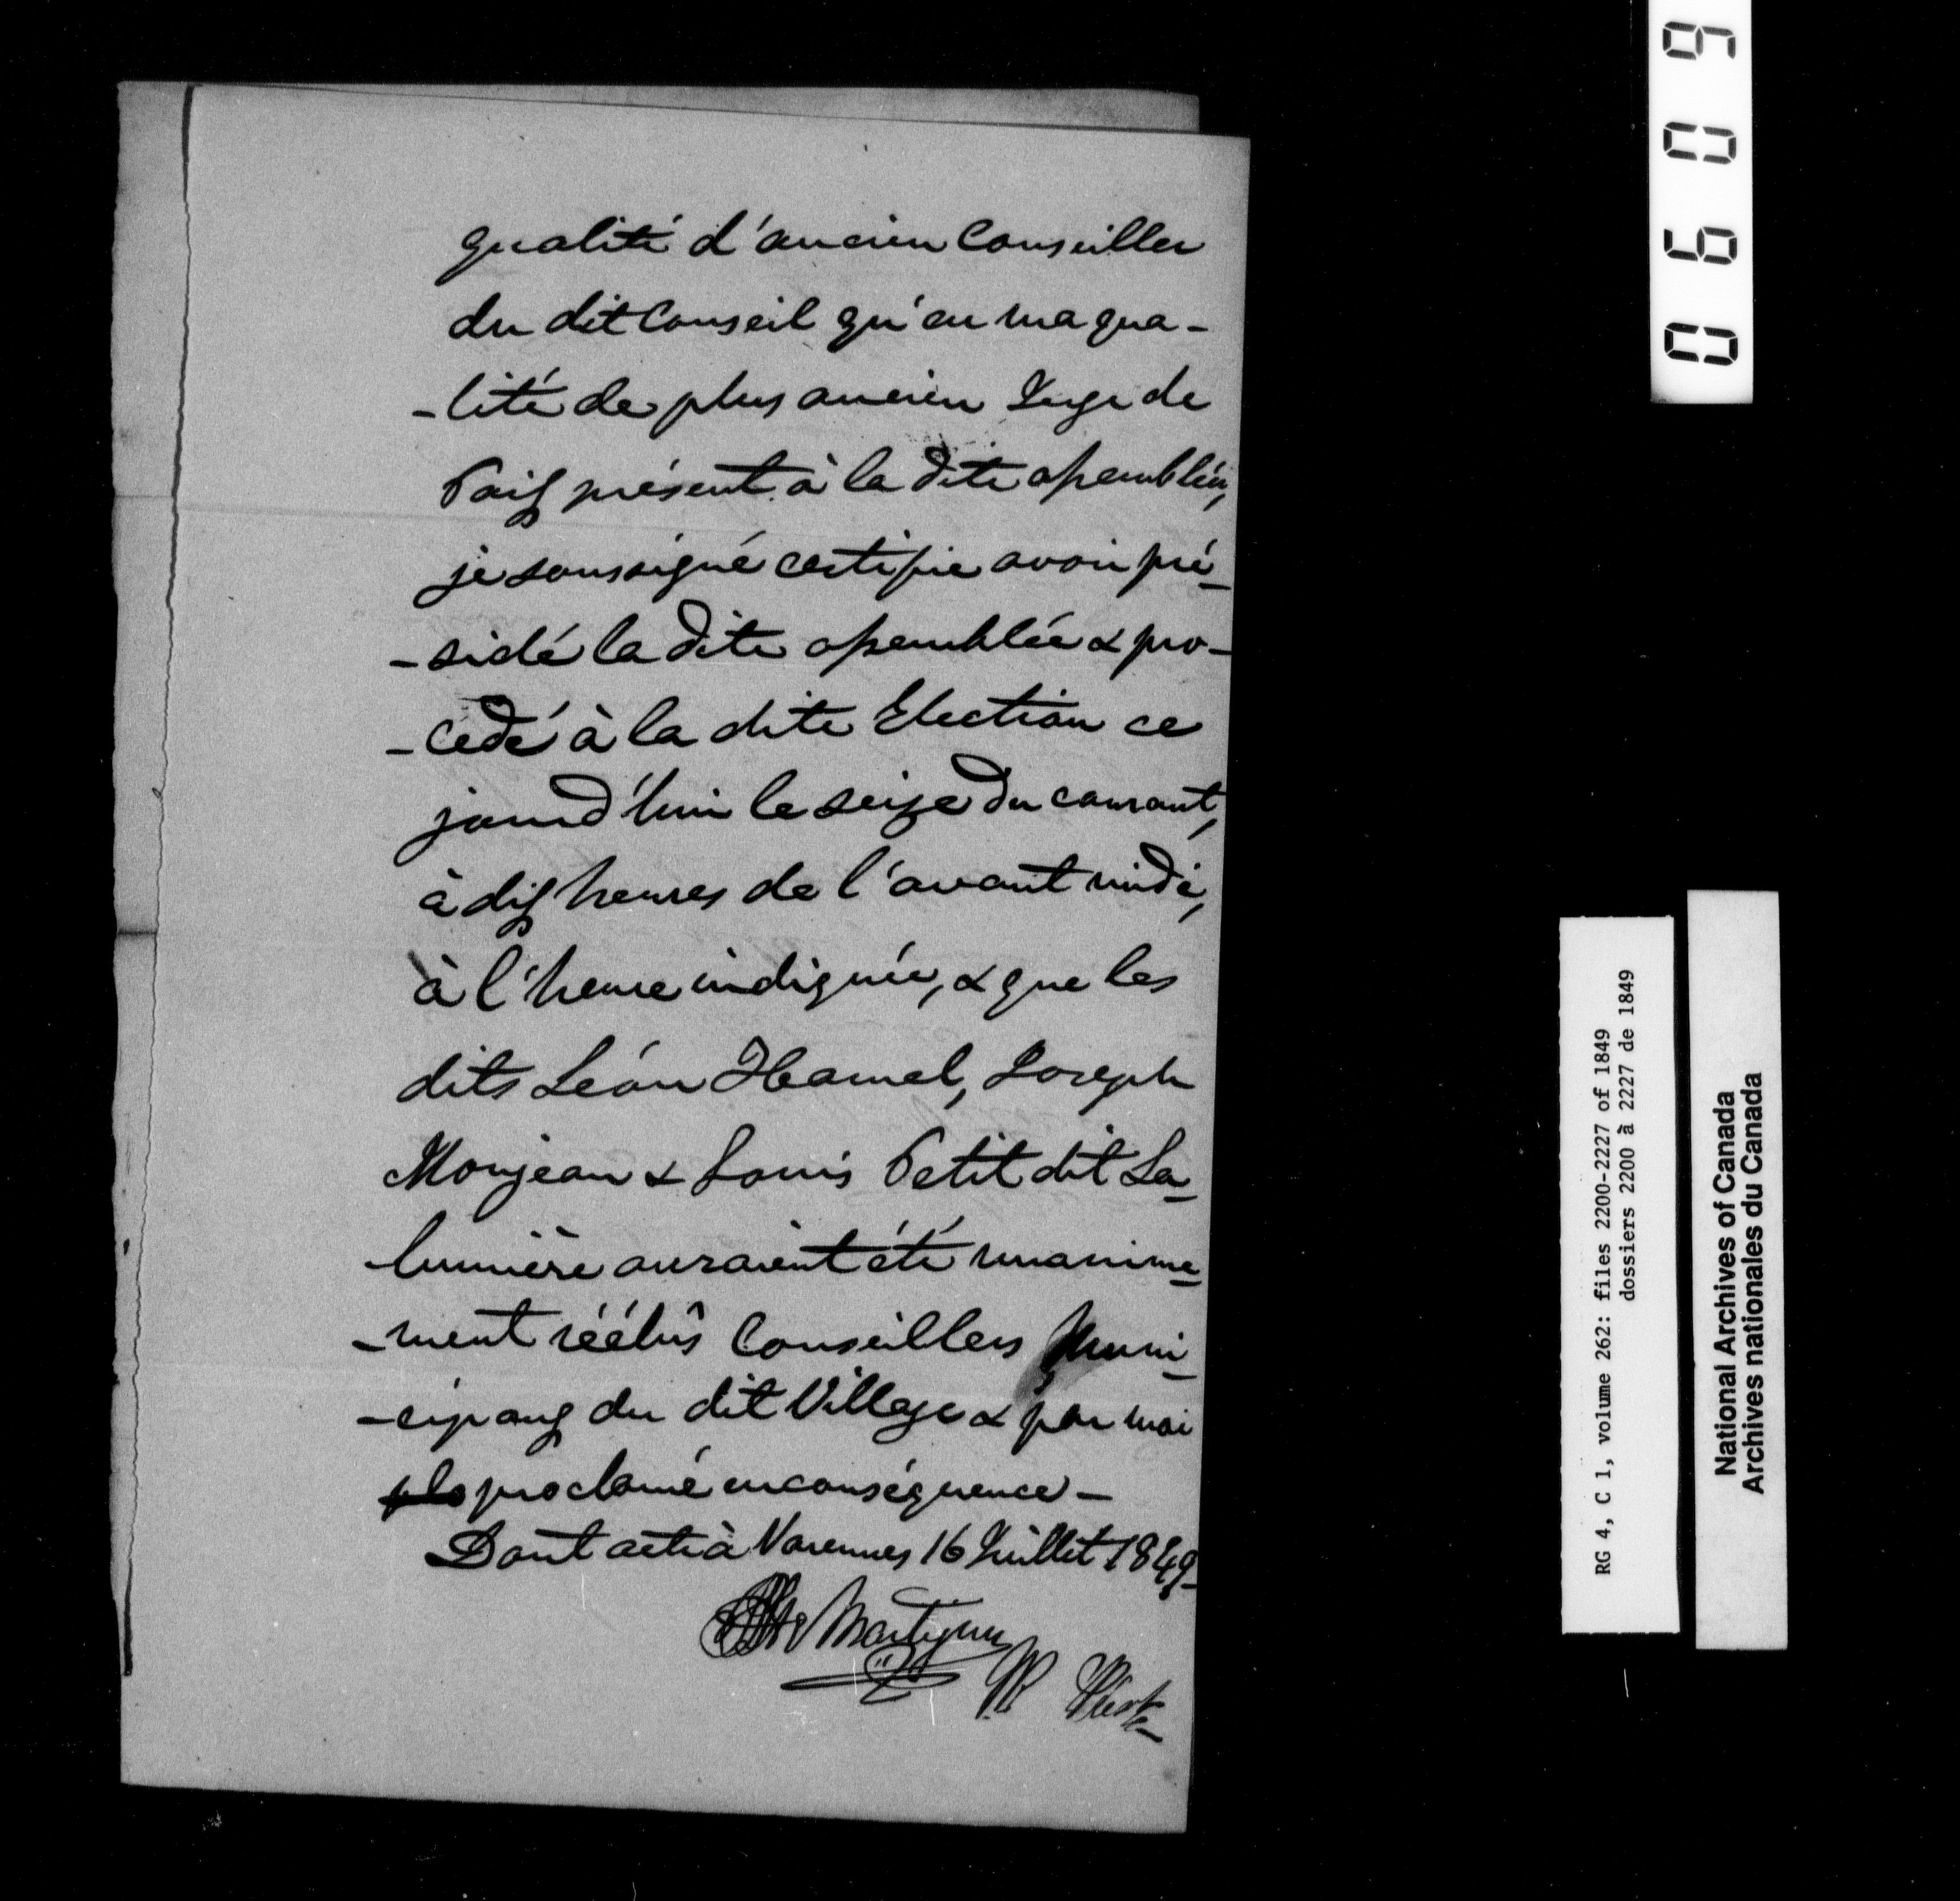 qualité d'ancien Conseiller
du dit Conseil qu'en ma qua-
-lité de plus ancien Juge de
Paix présent à la dite assemblée,
je soussigné certifie avoir pré-
-sidé la dite assemblée & pro-
-cédé à la dite Election ce
jourd'hui le seize du courant,
à dix heures de l'avant midi,
à l'heure indiquée, & que les
dits Léon Hamel, Joseph
Monjeau & Louis Petit dit La-
lumière auraient été unanime-
-ment réélus Conseillers Muni-
-cipaux du dit Village & par moi
proclamé en conséquence -
Dont acte à Varennes 16 Juillet 1849-
Martigny
0609
RG 4, C 1, volume 262: files 2200-2227 of 1849
dossiers 2200 à 2227 de 1849
National Archives of Canada
Archives nationales du Canada